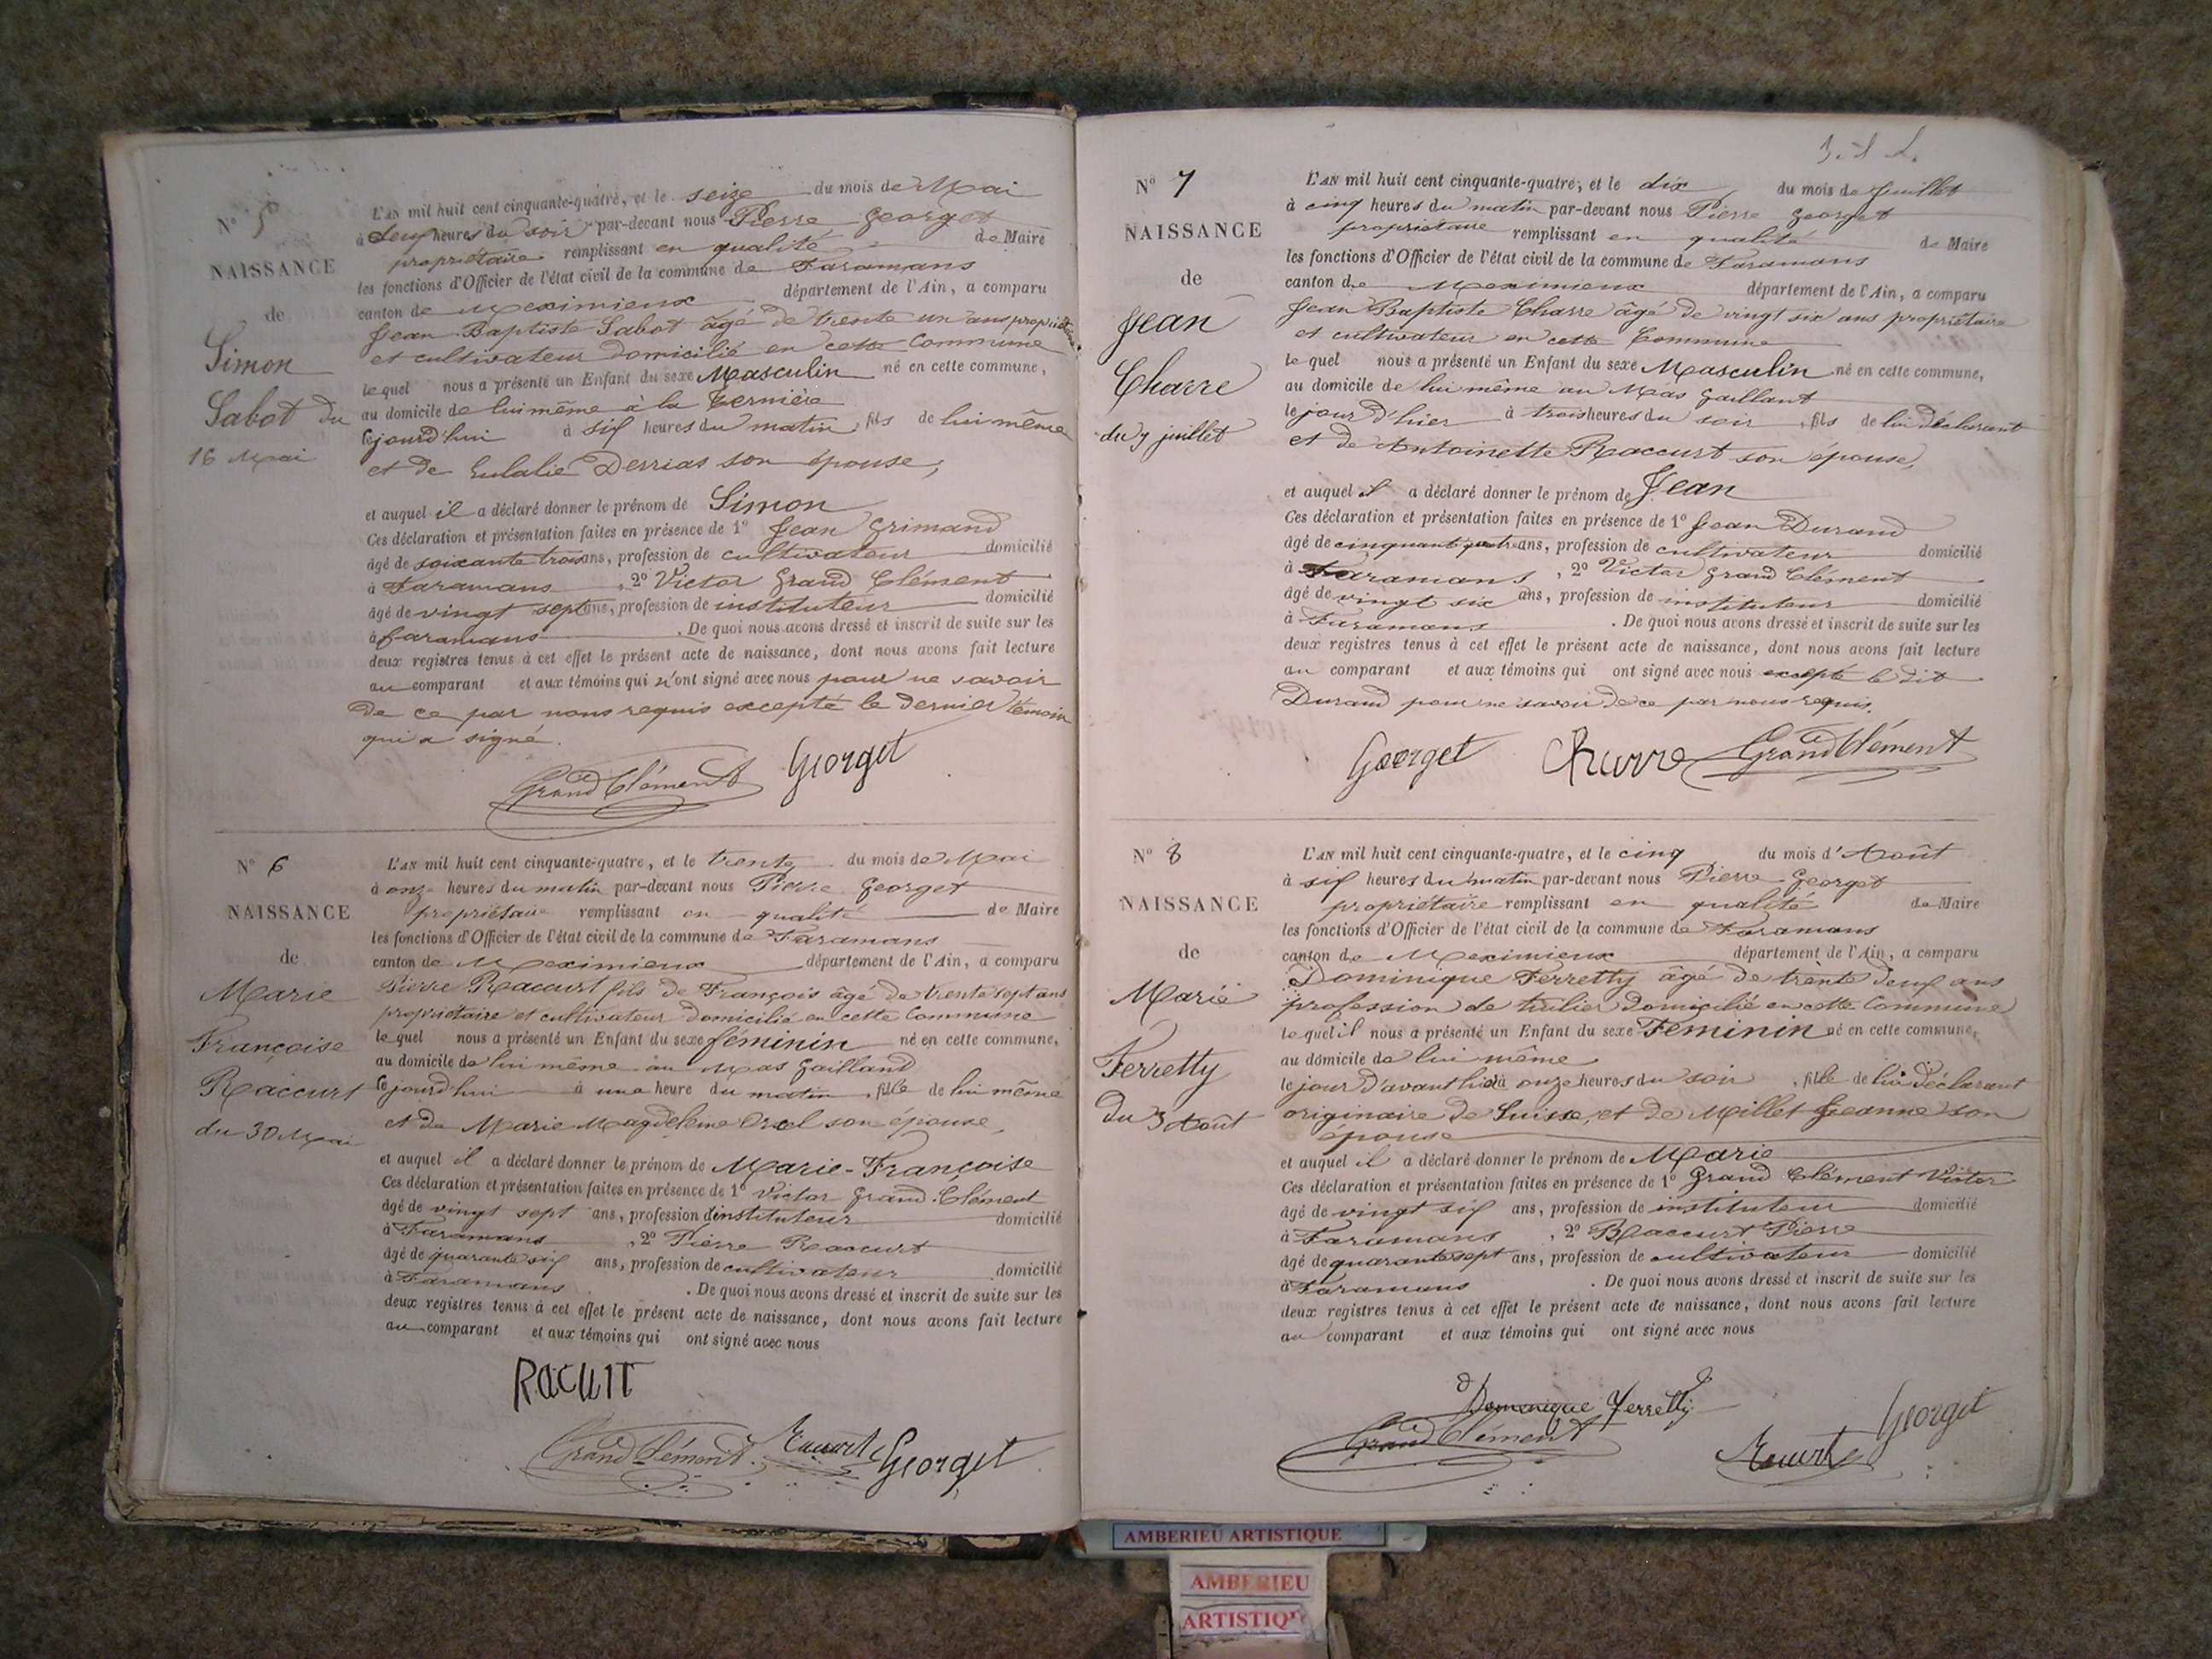 N° 5
NAISSANCE
de
Simon
Sabot du
16 Mai
L'AN mil huit cent cinquante-quatre, et le seize du mois de Mai
à deux heures du soir par-devant nous Pierre Georget
propriétaire remplissant en qualité de Maire
les fonctions d'Officier de l'état civil de la commune de Faramans
canton de Meximieux département de l'Ain, a comparu
Jean Baptiste Sabot âgé de trente un ans propriétaire
et cultivateur domicilié en cette Commune
le quel nous a présenté un Enfant du sexe Masculin né en cette commune,
au domicile de lui même à la
ce jourd'hui à six heures du matin, fils de lui même
et de Eulalie Derrias son épouse,
et auquel il a déclaré donner le prénom de Simon
Ces déclaration et présentation faites en présence de 1° Jean Grimand
âgé de soixante trois ans, profession de cultivateur domicilié
à Faramans, 2° Victor Grand Clément
âgé de vingt sept ans, profession de instituteur domicilié
à faramans. De quoi nous avons dressé et inscrit de suite sur les
deux registres tenus à cet effet le présent acte de naissance, dont nous avons fait lecture
au comparant et aux témoins qui n'ont signé avec nous pour ne savoir
de ce par nous requis excepté le dernier témoin
qui a signé.
Grand Clément Georget
N° 6
NAISSANCE
de
Marie
Françoise
Raccurt
du 30 Mai
L'AN mil huit cent cinquante-quatre, et le trente du mois de Mai
à onze heures du matin par-devant nous Pierre Georget
propriétaire remplissant en qualité de Maire
les fonctions d'Officier de l'état civil de la commune de Faramans
canton de Meximieux département de l'Ain, a comparu
Pierre Raccurt fils de François âgé de trente sept ans
propriétaire et cultivateur domicilié en cette Commune
le quel nous a présenté un Enfant du sexe féminin né en cette commune,
au domicile de lui même au Mas Gailland
ce jourd'hui à une heure du matin, fille de lui même
et de Marie Magdeleine Orcel son épouse,
et auquel il a déclaré donner le prénom de Marie-Françoise
Ces déclaration et présentation faites en présence de 1° Victor Grand Clément
âgé de vingt sept ans, profession d'instituteur domicilié
à Faramans, 2° Pierre Raccurt
âgé de quarante six ans, profession de cultivateur domicilié
à Faramans. De quoi nous avons dressé et inscrit de suite sur les
deux registres tenus à cet effet le présent acte de naissance, dont nous avons fait lecture
au comparant et aux témoins qui ont signé avec nous
Racurt
Grand Clément Raccurt Georget
N° 7
NAISSANCE
de
Jean
Charre
du 9 juillet
L'AN mil huit cent cinquante-quatre, et le dix du mois de Juillet
à cinq heures du matin par-devant nous Pierre Georget
propriétaire remplissant en qualité de Maire
les fonctions d'Officier de l'état civil de la commune de Faramans
canton de Meximieux département de l'Ain, a comparu
Jean Baptiste Charre âgé de vingt six ans propriétaire
et cultivateur en cette Commune
le quel nous a présenté un Enfant du sexe Masculin né en cette commune,
au domicile de lui même au Mas Gaillant
le jour d'hier à trois heures du soir, fils de lui déclarant
et de Antoinette Raccurt son épouse,
et auquel il a déclaré donner le prénom de Jean
Ces déclaration et présentation faites en présence de 1° Jean Durand
âgé de cinquante quatre ans, profession de cultivateur domicilié
à Faramans, 2° Victor Grand Clément
âgé de vingt six ans, profession de instituteur domicilié
à Faramans. De quoi nous avons dressé et inscrit de suite sur les
deux registres tenus à cet effet le présent acte de naissance, dont nous avons fait lecture
au comparant et aux témoins qui ont signé avec nous excepté le dit
Durand pour ne savoir de ce par nous requis.
Georget Charre Grand Clément
N° 8
NAISSANCE
de
Marie
Ferretty
du 3 Août
L'AN mil huit cent cinquante-quatre, et le cinq du mois d'Août
à six heures du matin par-devant nous Pierre Georget
propriétaire remplissant en qualité de Maire
les fonctions d'Officier de l'état civil de la commune de Faramans
canton de Meximieux département de l'Ain, a comparu
Dominique Ferretty âgé de trente deux ans
profession de tuilier domicilié en cette Commune
le quel il nous a présenté un Enfant du sexe Féminin né en cette commune,
au domicile de lui même
le jour d'avant hier à onze heures du soir, fille de lui déclarant
originaire de Suisse, et de Millet Jeanne son
épouse
et auquel il a déclaré donner le prénom de Marie
Ces déclaration et présentation faites en présence de 1° Grand Clément Victor
âgé de vingt six ans, profession de instituteur domicilié
à Faramans, 2° Raccurt Pierre
âgé de quarante sept ans, profession de cultivateur domicilié
à Faramans. De quoi nous avons dressé et inscrit de suite sur les
deux registres tenus à cet effet le présent acte de naissance, dont nous avons fait lecture
au comparant et aux témoins qui ont signé avec nous
Domenique Ferretty
Grand Clément Raccurt Georget
AMBERIEU ARTISTIQUE
AMBERIEU
ARTISTIQU